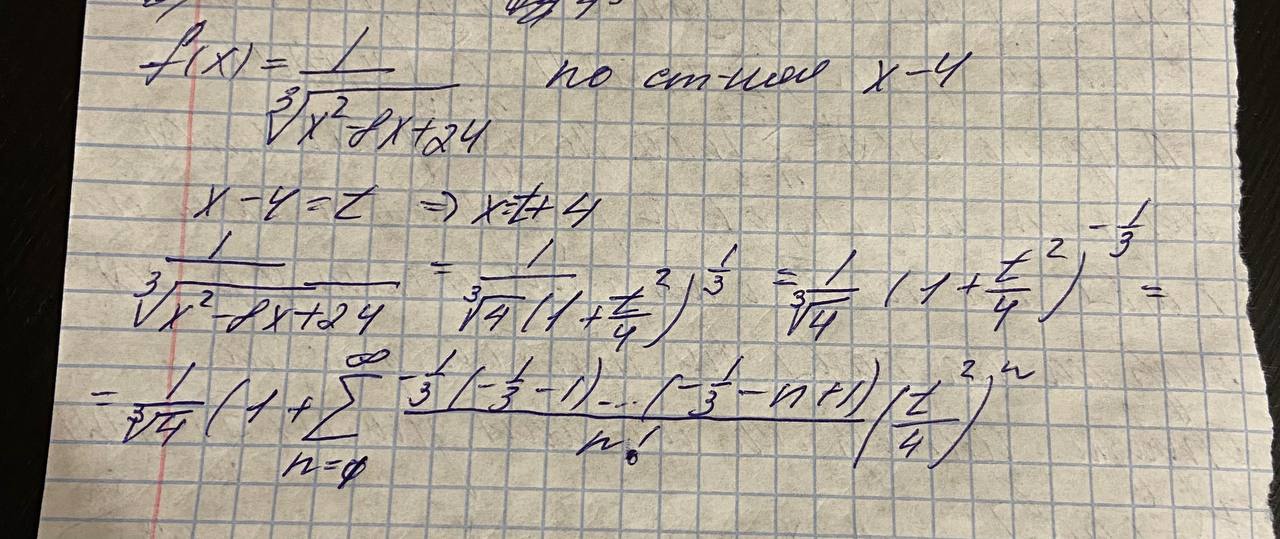 f(x) = 1/∛(x² - 8x + 24) по ст-ням x - 4
x - 4 = t ⇒ x = t + 4
1/∛(x² - 8x + 24) = 1/(∛4 (1 + t²/4)^(1/3)) = 1/∛4 (1 + t²/4)^(-1/3) =
= 1/∛4 (1 + ∑_{n=0}^{∞} (-1/3(-1/3 - 1)...(-1/3 - n + 1))/n! (t²/4)^n